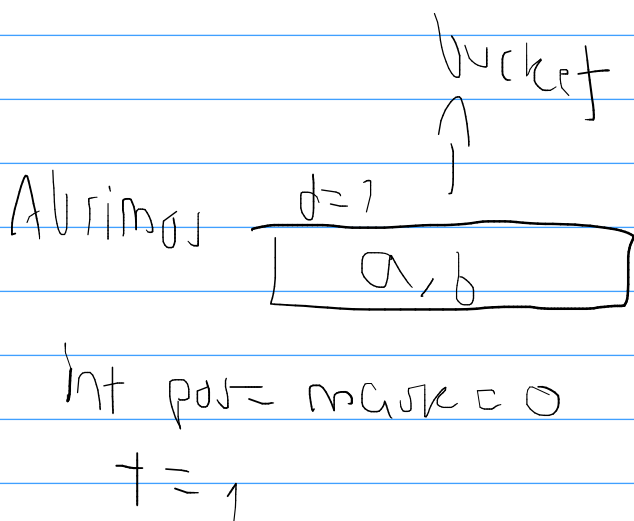 bucket
Abrimos d=1
a, b
int pos = mask = 0
t = 1